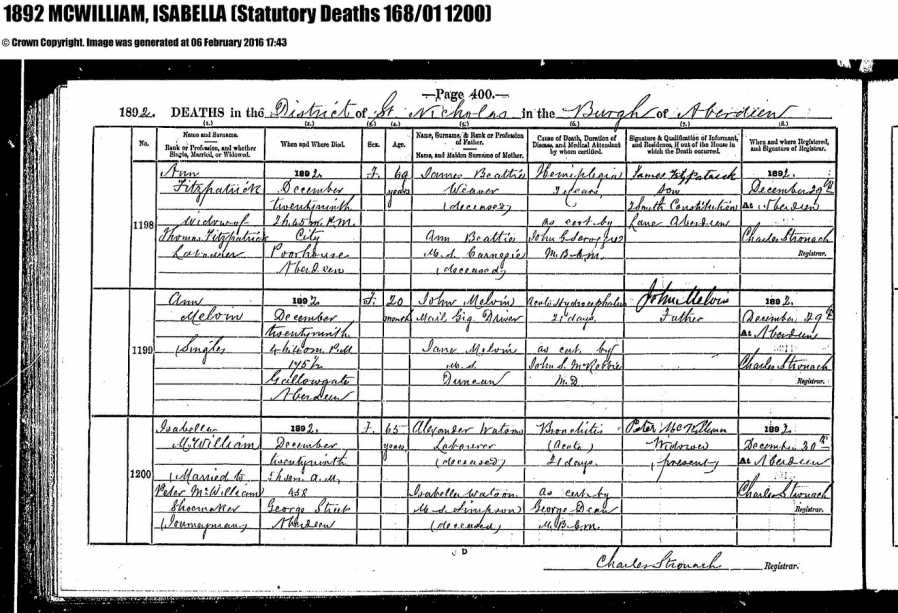 1892 MCWILLIAM, ISABELLA (Statutory Deaths 168/01 1200)
© Crown Copyright. Image was generated at 06 February 2016 17:43
—Page 400.—
1892. DEATHS in the District of St. Nicholas in the Burgh of Aberdeen
No.
(1.)
Name and Surname.
Rank or Profession, and whether
Single, Married, or Widowed.
(2.)
When and Where Died.
(3.)
Sex.
(4.)
Age.
(5.)
Name, Surname, & Rank or Profession
of Father.
Name, and Maiden Surname of Mother.
(6.)
Cause of Death, Duration of
Disease, and Medical Attendant
by whom certified.
(7.)
Signature & Qualification of Informant,
and Residence, if out of the House in
which the Death occurred.
(8.)
When and where Registered,
and Signature of Registrar.
1198
Ann
Fitzpatrick
Widow of
Thomas Fitzpatrick
Labourer
1892.
December
twentyninth
2h. 45m. P.M.
City
Poorhouse
Aberdeen
F.
69
years
James Beattie
Weaver
(deceased)
Ann Beattie
M.S. Carnegie
(deceased)
Hemiplegia
years
as cert. by
M.B.C.M.
James Fitzpatrick
Son
2 South Constitution
Lane Aberdeen
1892.
December 29th
At Aberdeen
Charles Stronach
Registrar.
1199
Ann
Melvin
Single
1892.
December
twentyninth
P.M.
Gallowgate
Aberdeen
F.
20
months
John Melvin
Mail Gig Driver
Jane Melvin
M.S.
Duncan
Acute Hydrocephalus
21 days.
as cert. by
M.D.
John Melvin
Father
1892.
December 29th
At Aberdeen
Charles Stronach
Registrar.
1200
Isabella
McWilliam
(Married to
Peter McWilliam
Shoemaker
(Journeyman)
1892.
December
twentyninth
A.M.
458
George Street
Aberdeen
F.
65
years
Alexander Watson
Labourer
(deceased)
Isabella Watson
M.S. Simpson
(deceased)
Bronchitis
(Acute)
21 days.
as cert. by
George Dean
M.B.C.M.
Peter McWilliam
Widower
(present)
1892.
December 30th
At Aberdeen
Charles Stronach
Registrar.
Charles Stronach Registrar.